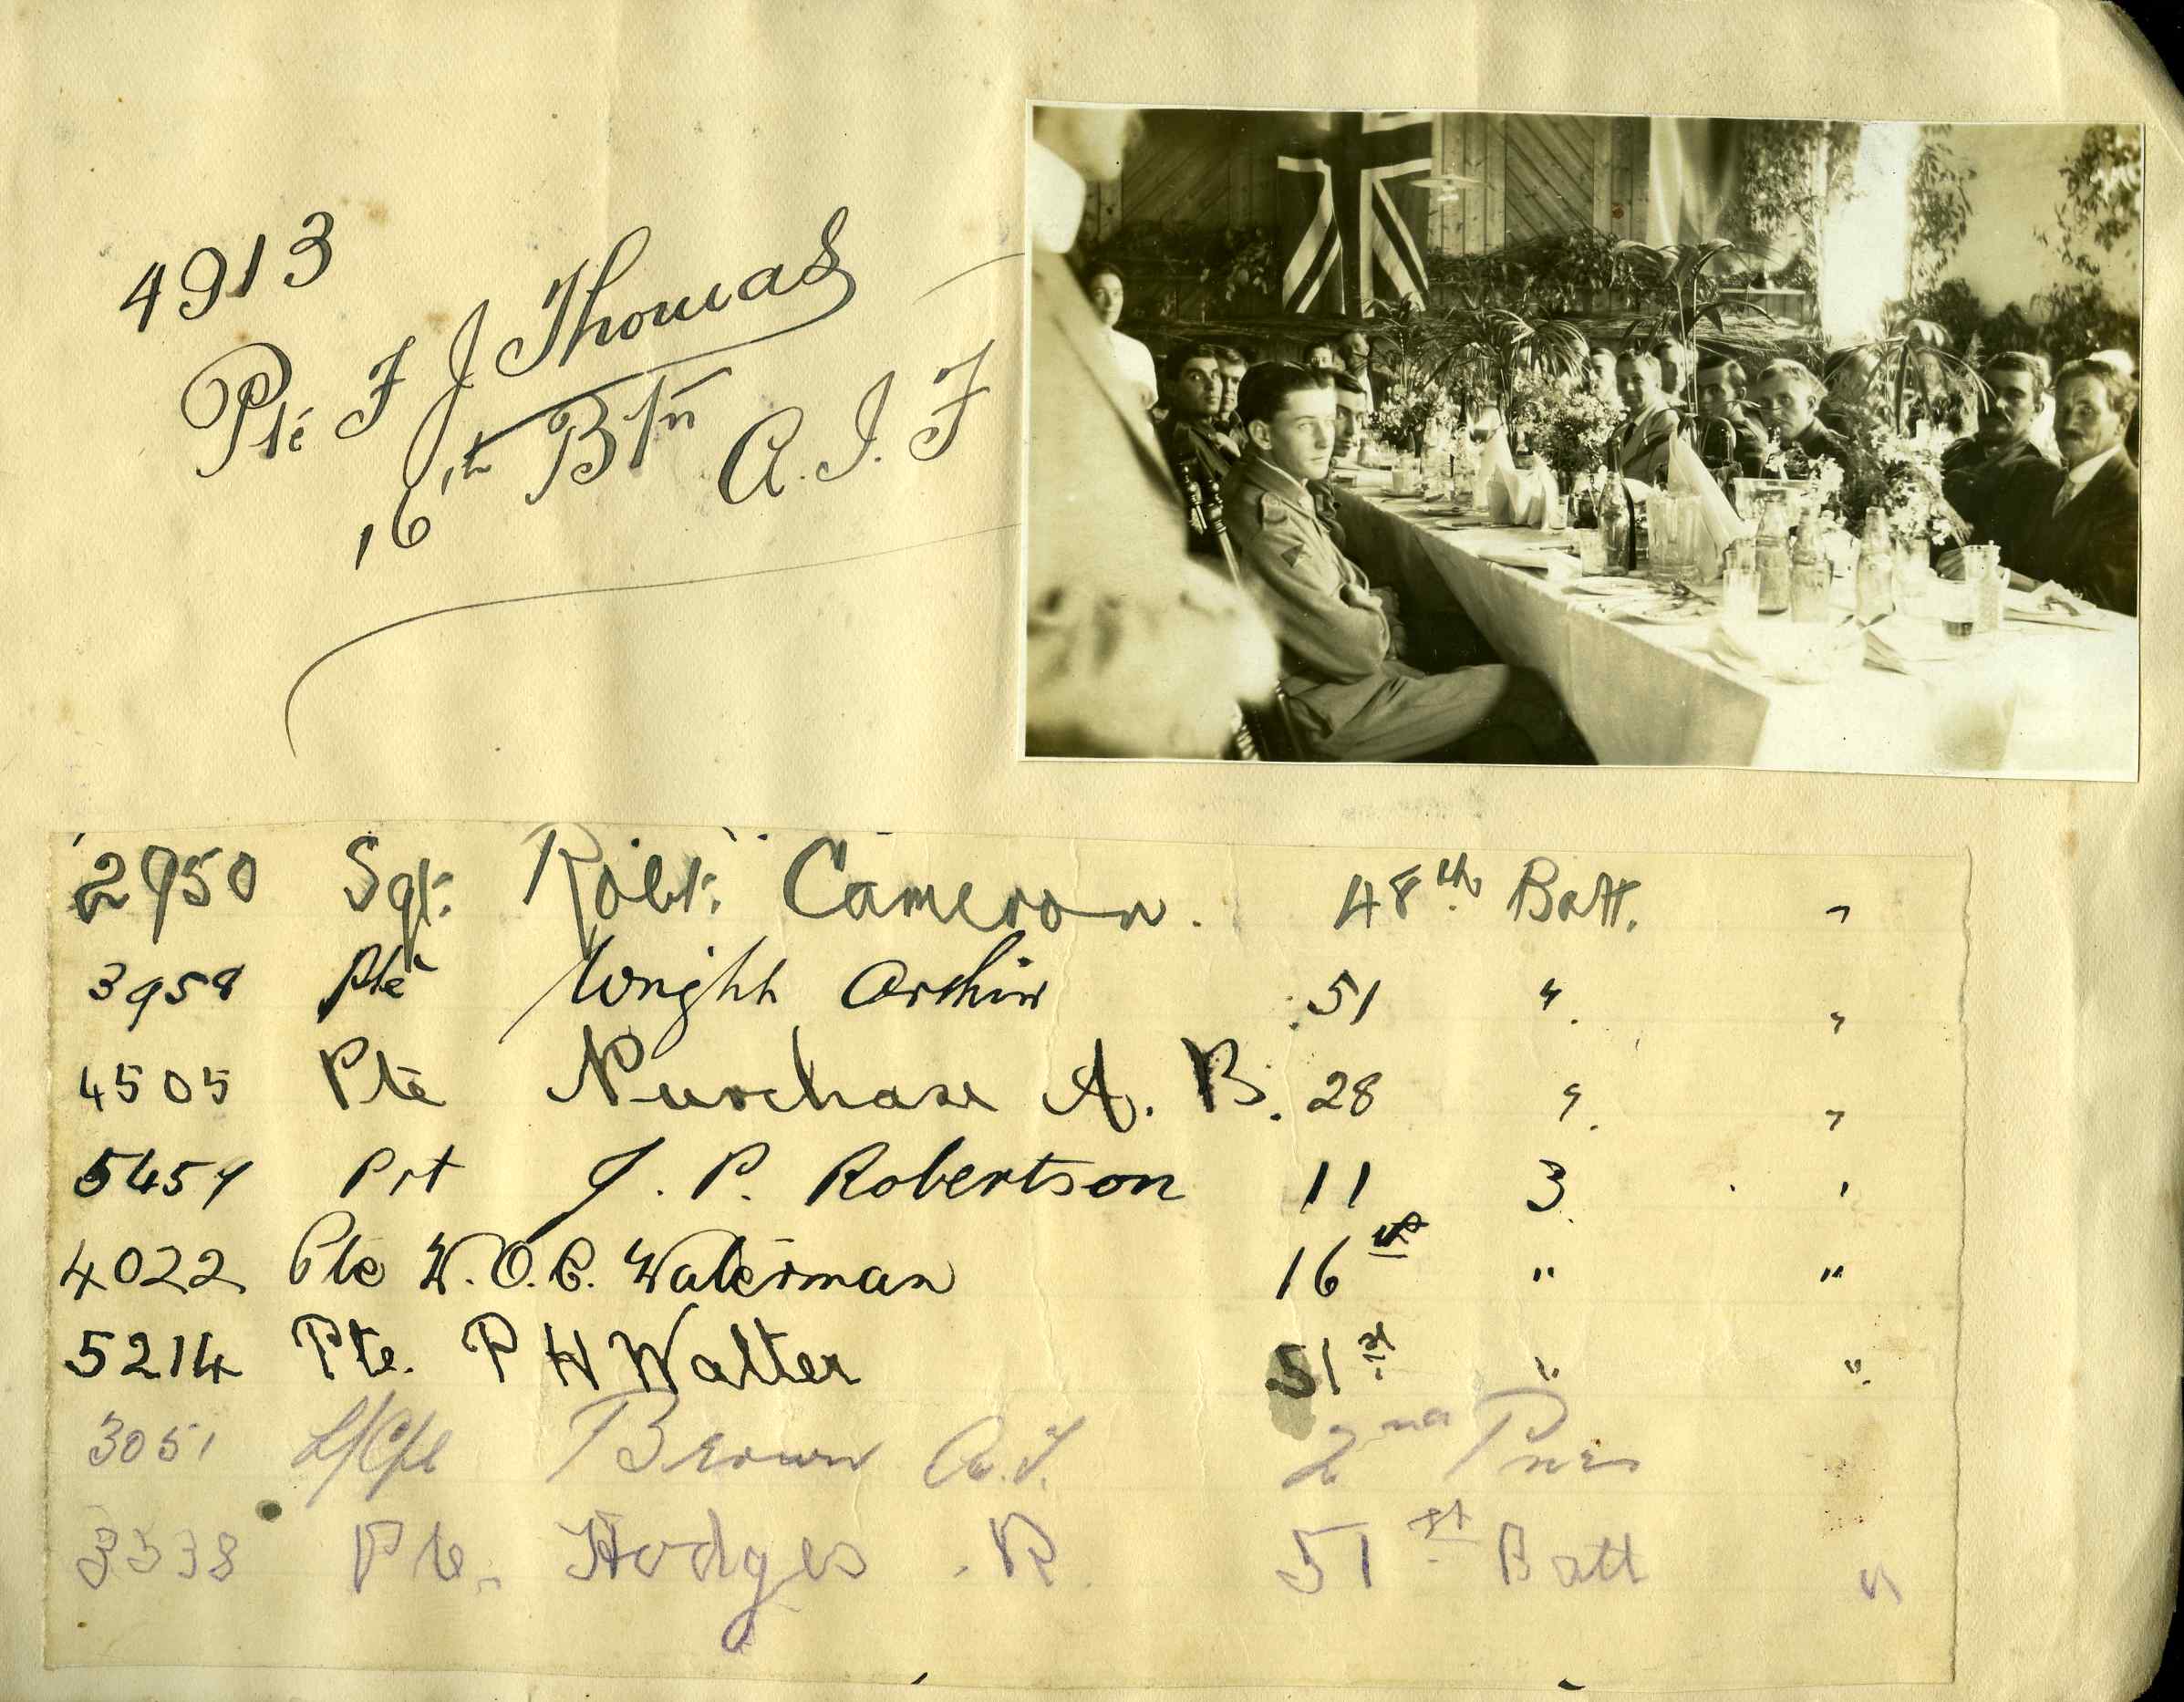 4913
Pte F J Thomas
16th Btn A.I.F
2950 Sgt. Robt. Cameron. 48th Batt. "
3958 Pte Wright 51 " "
4505 Pte Purchase A. B. 28 " "
Prt J. P. Robertson 11 3 "
4022 Pte W.O.C. Waterman 16th " "
5214 Pte. P H Walter 51st " "
3051 L/Cpl Brown 2nd Pnrs
3538 Pte. Hodges . R. 51st Batt "